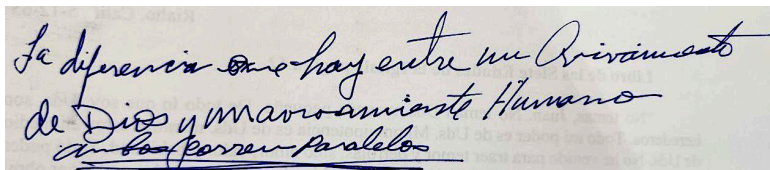 La diferencia que hay entre un Avivamiento
de Dios y un avivamiento Humano
ambos corren paralelos